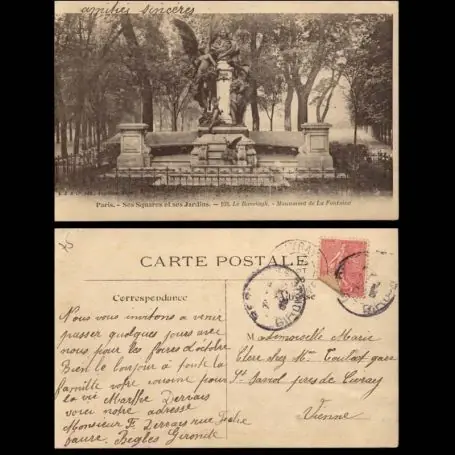 amitiés sincères
Paris. - Ses Squares et ses Jardins. - 103. Le Ranelagh. - Monument de La Fontaine
CARTE POSTALE
Correspondance
Nous vous invitons a venir
passer quelques jours avec
nous pour les foires d'octobre
Bien le bonjour à toute la
famille votre cousine pour
la vie Marthe Dervais
voici notre adresse
Monsieur F. Dervais rue
faure. Bègles Gironde
Mademoiselle Marie
chez Mme gare
St près de Civray
Vienne